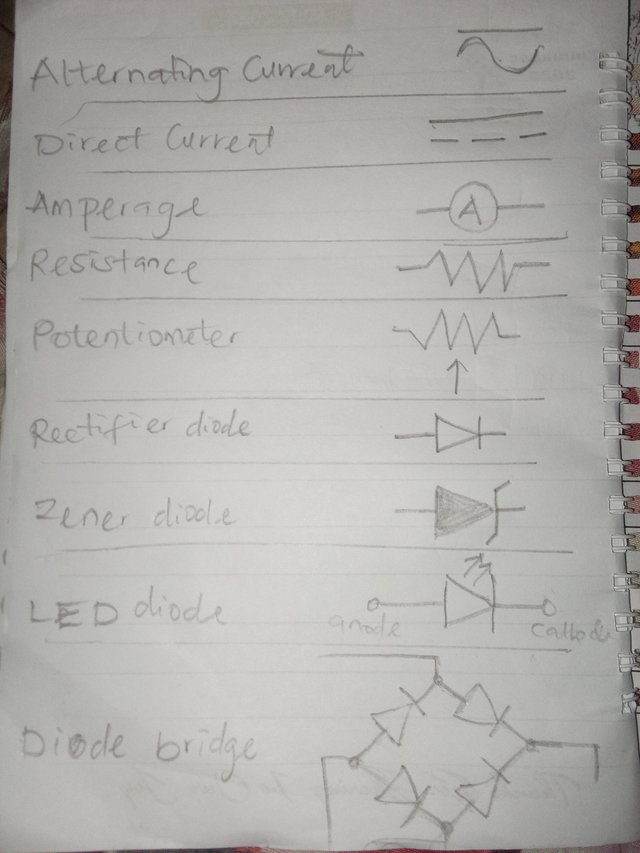 Alternating Current
Direct Current
Amperage A
Resistance
Potentiometer
Rectifier diode
Zener diode
LED diode anode
Diode bridge